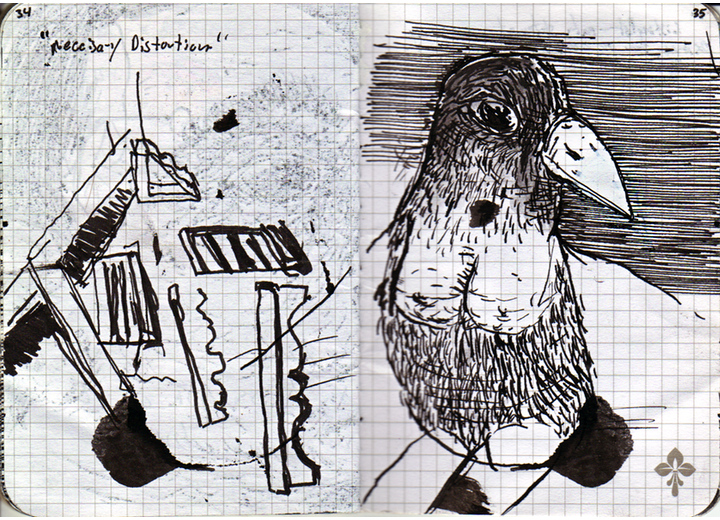 34
"Neccisary Distortion"
35